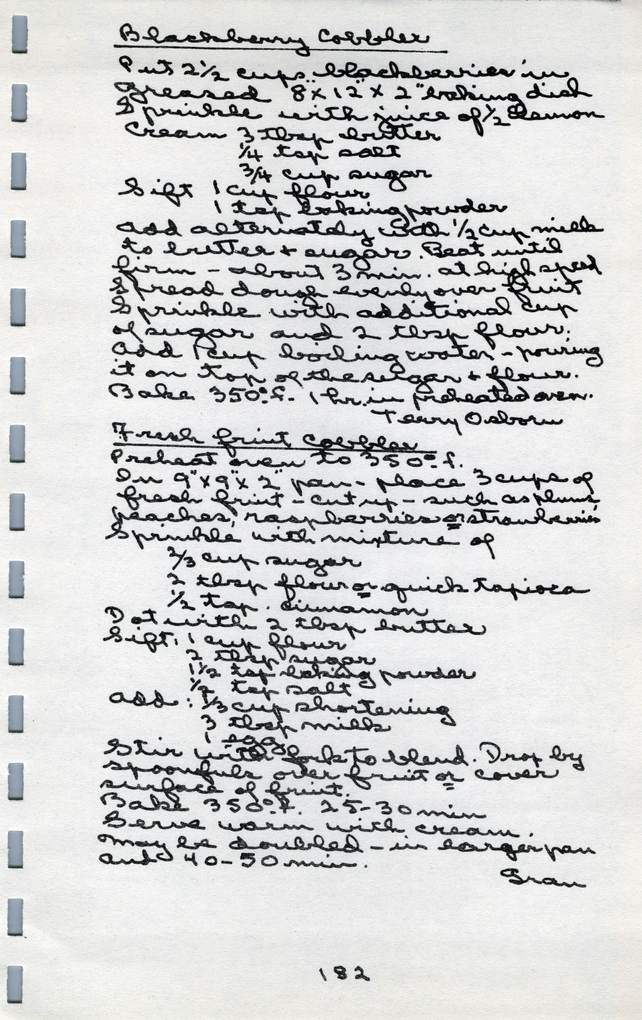 Blackberry Cobbler
Put 2½ cups blackberries in
greased 8"x12"x2" baking dish
Sprinkle with juice of ½ lemon
Cream 3 tbsp butter
¼ tsp salt
¾ cup sugar
Sift 1 cup flour
1 tsp baking powder
Add alternately with ½ cup milk
to butter + sugar. Beat until
firm - about 3 min. at high speed
Spread dough evenly over fruit
Sprinkle with additional cup
of sugar and 2 tbsp flour.
Add 1 cup boiling water - pouring
it on top of the sugar + flour.
Bake 350°f. 1 hr. in preheated oven.
Terry Osborn
Fresh fruit Cobbler
Preheat oven to 350°f.
In 9"x9"x2 pan - place 3 cups of
fresh fruit - cut up - such as plums,
peaches, raspberries or strawberries
Sprinkle with mixture of
⅔ cup sugar
2 tbsp flour or quick tapioca
½ tsp. cinnamon
Dot with 2 tbsp butter
Sift: 1 cup flour
2 tbsp sugar
1½ tsp baking powder
½ tsp salt
Add: ⅓ cup shortening
3 tbsp milk
1 egg
Stir with fork to blend. Drop by
spoonfuls over fruit or cover
surface of fruit.
Bake 350°f. 25-30 min
Serve warm with cream.
May be doubled - in larger pan
and 40-50 min.
Gran
182